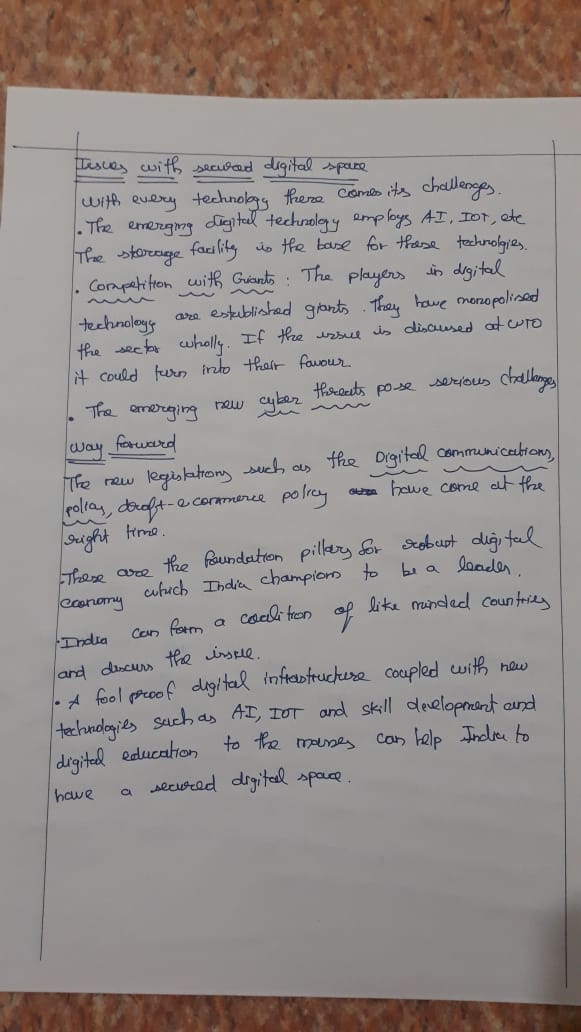 Issues with secured digital space
With every technology there comes its challenges.
. The emerging digital technology employs AI, IOT, etc
The storage facility is the base for these technolgies.
. Competition with Giants : The players in digital
technology are established giants. They have monopolised
the sector wholly. If the issue is discussed at WTO
it could turn into their favour.
. The emerging new cyber threats pose serious challenges
Way forward
The new legislations such as the Digital communications
policy, draft-e commerce policy have come at the
right time.
. These are the foundation pillars for robust digital
economy which India champions to be a leader.
. India can form a coalition of like minded countries
and discuss the issue.
. A fool proof digital infrastructure coupled with new
technologies such as AI, IOT and skill development and
digital education to the masses can help India to
have a secured digital space.